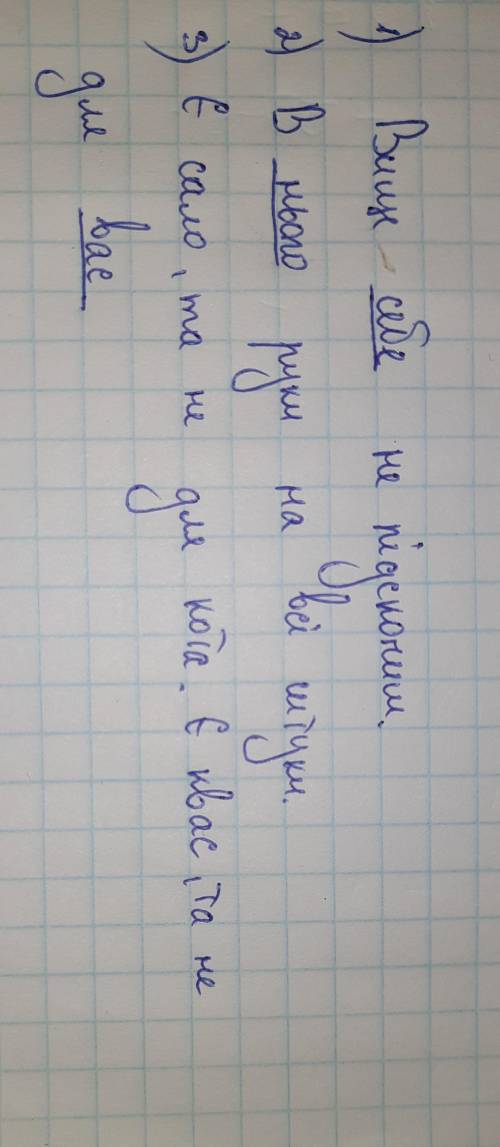 1) Вище себе не підскочиш.
2) В нього руки на всі штуки.
3) Є сало, та не для кота. Є квас, та не
для вас